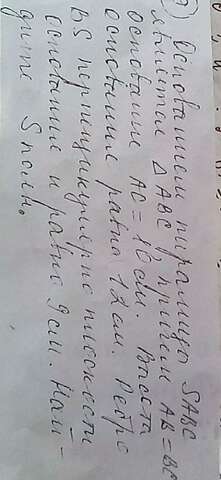 2) Основанием пирамиды SABC
является ΔABC причем AB=BC
основание AC = 16 см. Высота
основания равна 12 см. Ребро
BS перпендикулярно плоскости
основания и равно 9 см. Най-
дите S полн.